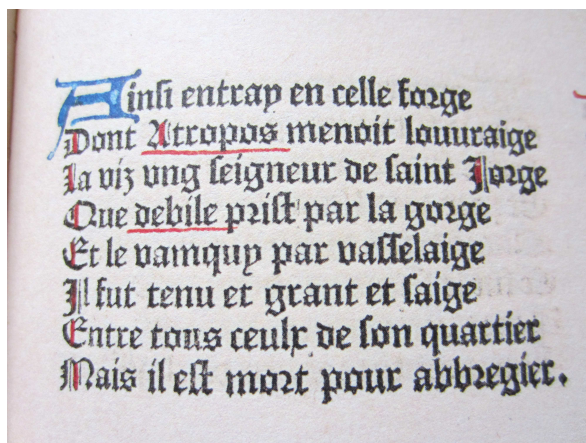 Ainsi entray en celle forge
Dont Atropos menoit louuraige
La viz vng seigneur de saint Jorge
Que debile prist par la gorge
Et le vamquy par vasselaige
Jl fut tenu et grant et saige
Entre tous ceulx de son quartier
Mais il est mort pour abbregier.